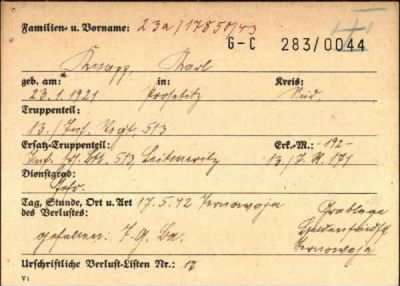 Familien- u. Vorname: 23a/17850/43
G-C 283/0044
Knapp, Karl
geb. am: in: Kreis:
23.1.1921
Truppenteil:
13./Inf. Regt. 513
Ersatz-Truppenteil: Erk.-M.: -192-
Inf. Btl. 513, Leitmeritz 13/J.R. 171
Dienstgrad:
Gefr.
Tag, Stunde, Ort u. Art 17.5.42 Grablage
des Verlustes:
gefallen: I.G.
Urschriftliche Verlust-Listen Nr.: 17
V1